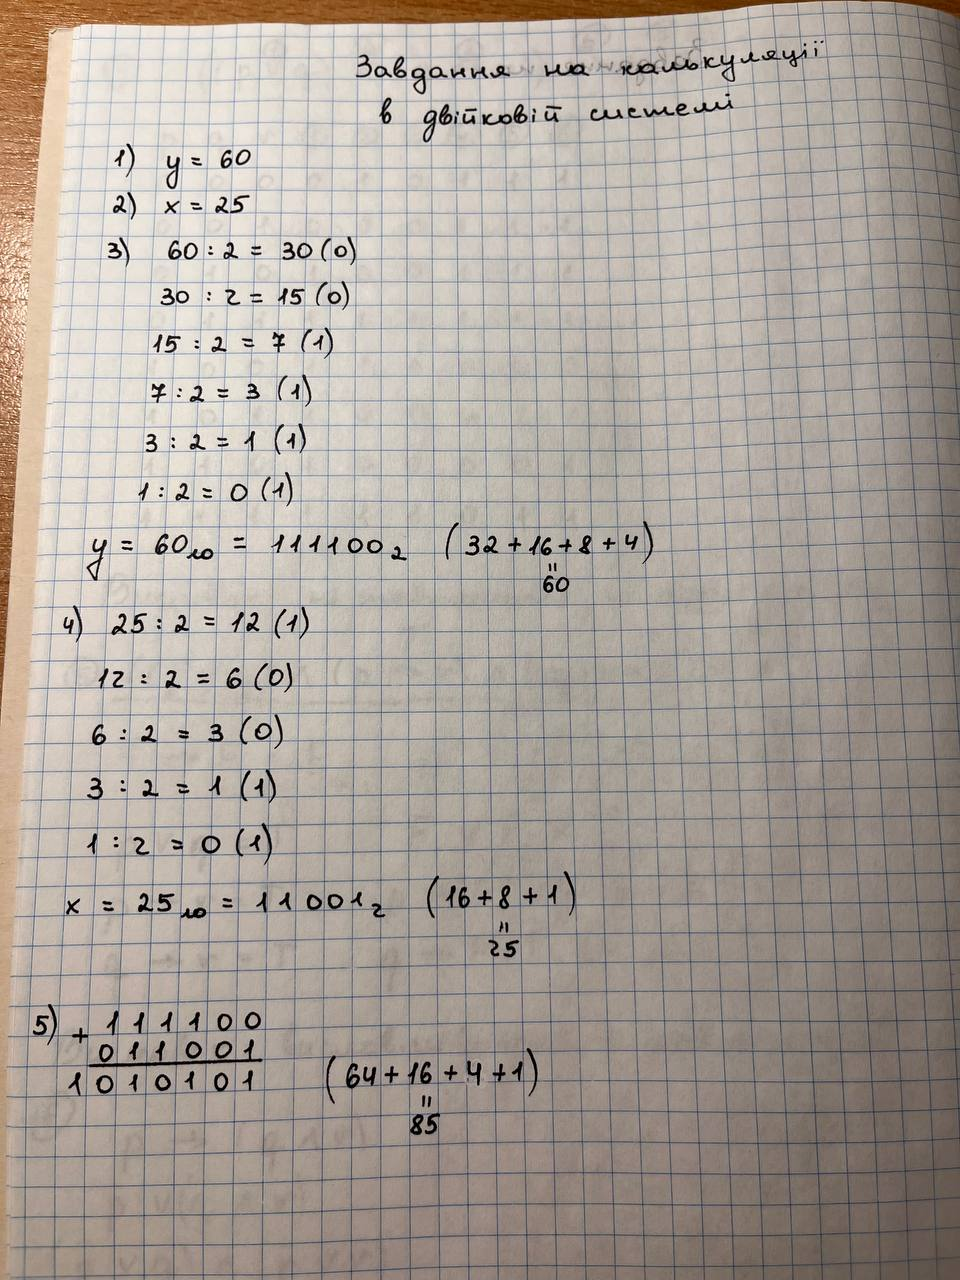 Завдання на калькуляції
в двійковій системі
1) y = 60
2) x = 25
3) 60 : 2 = 30 (0)
30 : 2 = 15 (0)
15 : 2 = 7 (1)
7 : 2 = 3 (1)
3 : 2 = 1 (1)
1 : 2 = 0 (1)
y = 60₁₀ = 111100₂ (32 + 16 + 8 + 4)
=
60
4) 25 : 2 = 12 (1)
12 : 2 = 6 (0)
6 : 2 = 3 (0)
3 : 2 = 1 (1)
1 : 2 = 0 (1)
x = 25₁₀ = 11001₂ (16 + 8 + 1)
=
25
5) + 111100
011001
1010101 (64 + 16 + 4 + 1)
=
85